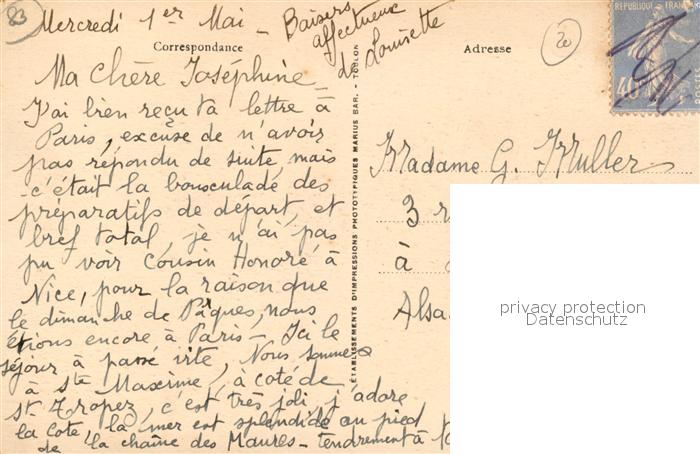 83
Mercredi 1er Mai - Baisers
affectueux
de Louisette
Correspondance
Ma Chère Joséphine
J'ai bien reçu ta lettre à
Paris, excuse de n'avoir
pas répondu de suite, mais
c'était la bousculade des
préparatifs de départ, et
bref total, je n'ai pas
pu voir cousin Honoré à
Nice, pour la raison que
le dimanche de Pâques, nous
étions encore à Paris - Ici le
séjour à passé vite, Nous sommes
à Ste Maxime, à coté de
St. Tropez, c'est très joli j'adore
la cote, la mer est splendide au pied
de la chaîne des Maures - tendrement à
ÉTABLISSEMENTS D'IMPRESSIONS PHOTOTYPIQUES MARIUS BAR. - TOULON
Adresse
20
RÉPUBLIQUE FRANÇAISE
40
Madame G. Muller
3
à
Alsa
privacy protection
Datenschutz